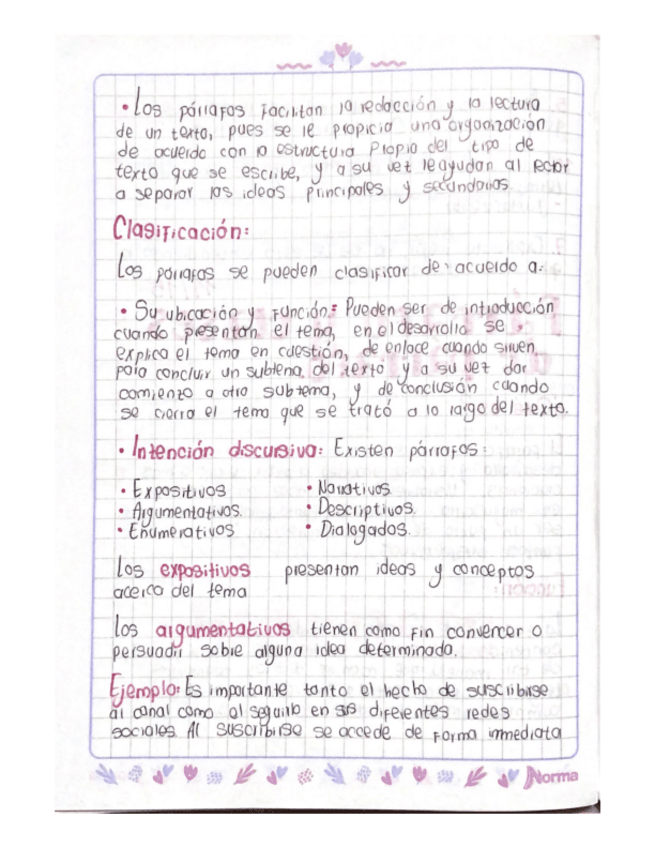 • Los párrafos facilitan la redacción y la lectura
de un texto, pues se le propicia una organización
de acuerdo con la estructura propia del tipo de
texto que se escribe, y a su vet le ayudan al lector
a separar las ideas principales y secundarias.
Clasificación:
Los párrafos se pueden clasificar de acuerdo a:
• Su ubicación y función: Pueden ser de introducción
cuando presentan el tema, en el desarrollo se
explica el tema en cuestión, de enlace cuando sirven
para concluir un subtema del texto y a su vez dar
comienzo a otro subtema, y de conclusión cuando
se cierra el tema que se trató a lo largo del texto.
• Intención discursiva: Existen párrafos:
• Expositivos • Narrativos.
• Argumentativos. • Descriptivos.
• Enumerativos • Dialogados.
Los expositivos presentan ideas y conceptos
acerca del tema
Los argumentativos tienen como fin convencer o
persuadir sobre alguna idea determinada.
Ejemplo: Es importante tanto el hecho de suscribirse
al canal como al seguirlo en sus diferentes redes
sociales. Al suscribirse se accede de forma inmediata
Norma